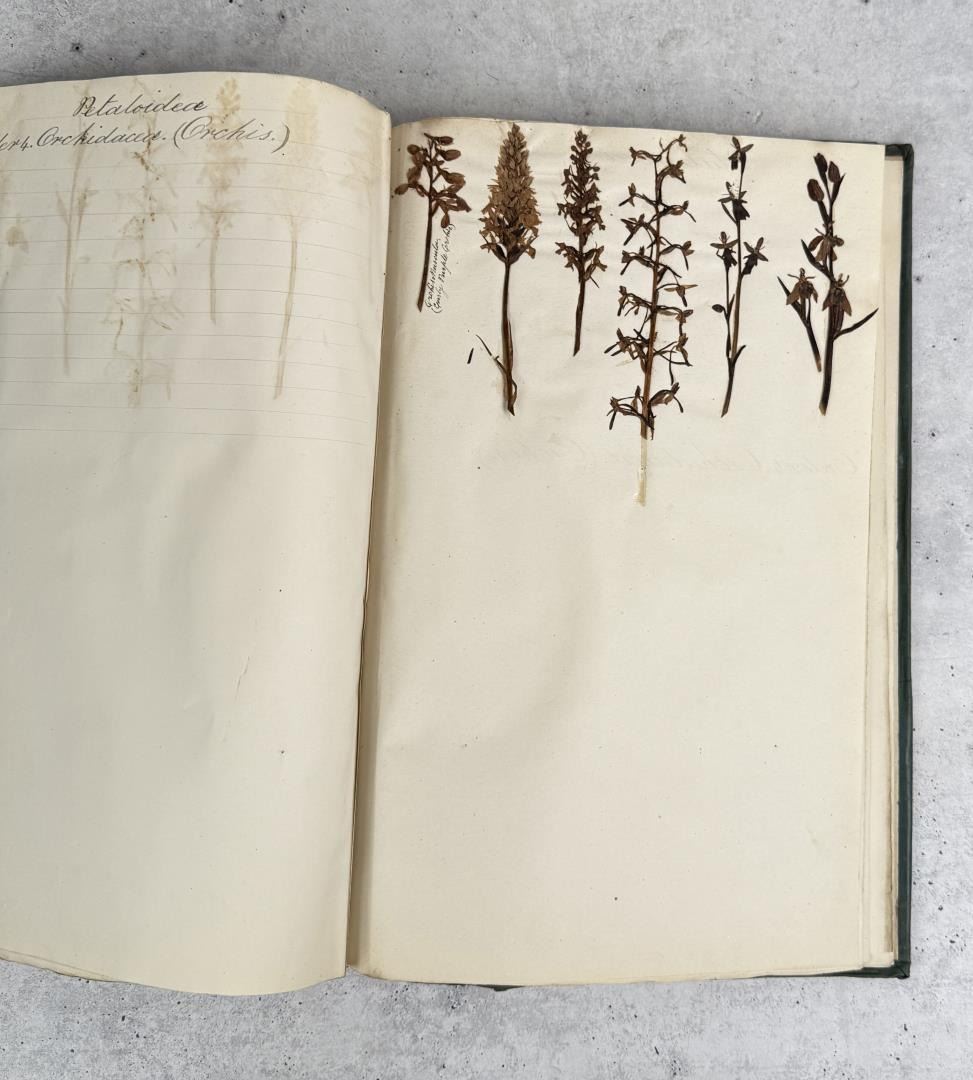 Petaloideæ
er 4. Orchidaceæ. (Orchis.)
Orchis Mascula.
(Early Purple Orchis)